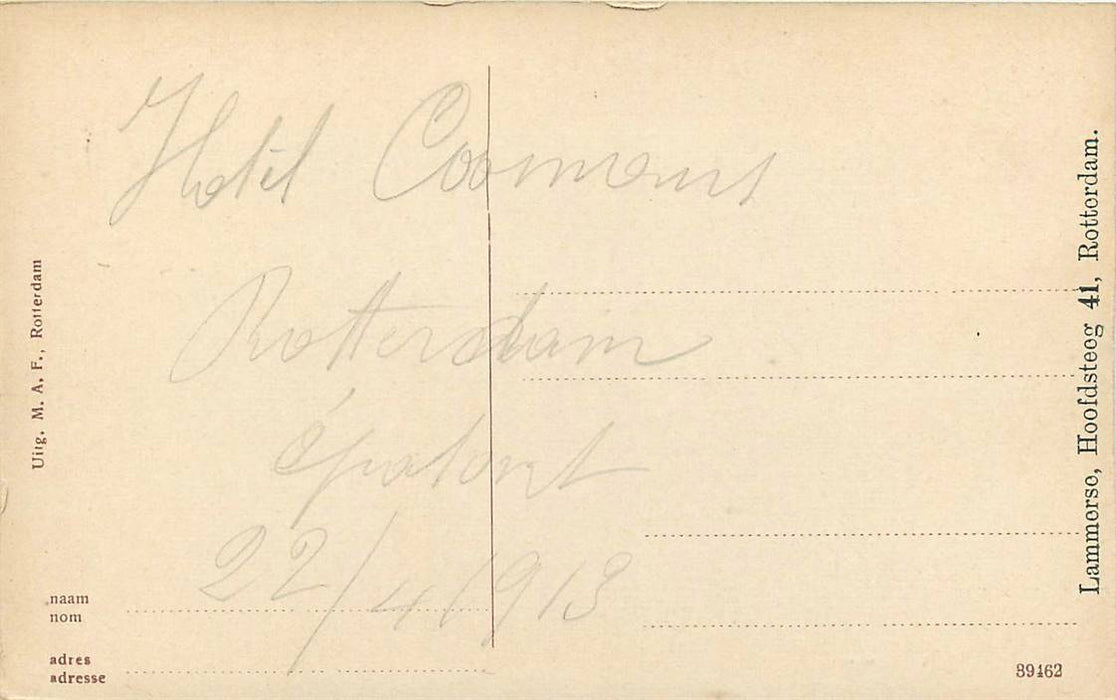 Hotel Coomans
Rotterdam
épatant
22/4/1913
Uitg. M. A. F., Rotterdam
naam
nom
adres
adresse
Lammerse, Hoofdsteeg 41, Rotterdam.
39462